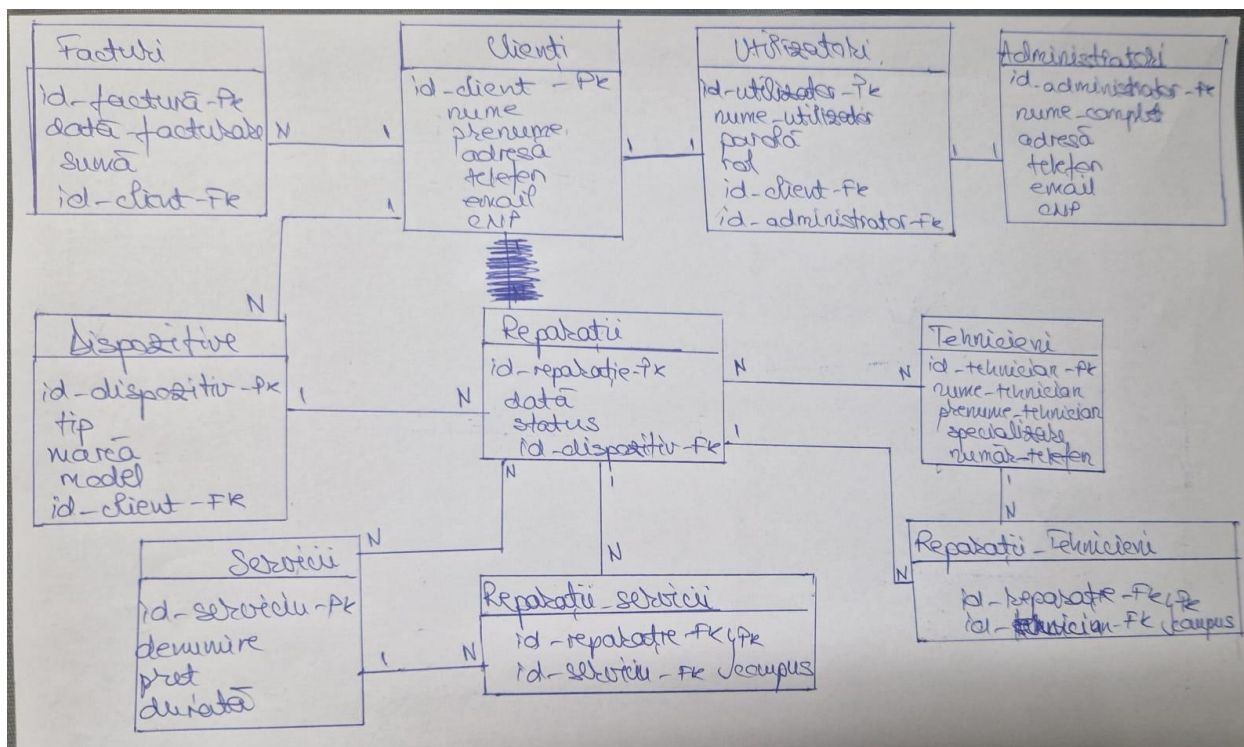 Facturi
id-factură-Pk
dată-facturare
sumă
id-client-Fk
N
1
Clienți
id-client-Pk
nume
prenume
adresă
telefon
email
CNP
1
1
Utilizatori
id-utilizator-Pk
nume-utilizator
parolă
rol
id-client-Fk
id-administrator-Fk
1
1
Administratori
id-administrator-Pk
nume-complet
adresă
telefon
email
CNP
1
N
Dispozitive
id-dispozitiv-Pk
tip
marcă
model
id-client-FK
1
N
Reparații
id-reparație-Pk
dată
status
id-dispozitiv-Fk
N
N
Tehnicieni
id-tehnician-Pk
nume-tehnician
prenume-tehnician
specializare
număr-telefon
1
N
1
N
N
N
1
N
Servicii
id-serviciu-Pk
denumire
preț
durată
1
N
Reparații_servicii
id-reparație-Fk, Pk
id-serviciu-FK compus
Reparații_Tehnicieni
id-reparație-Fk, Pk
id-tehnician-FK compus